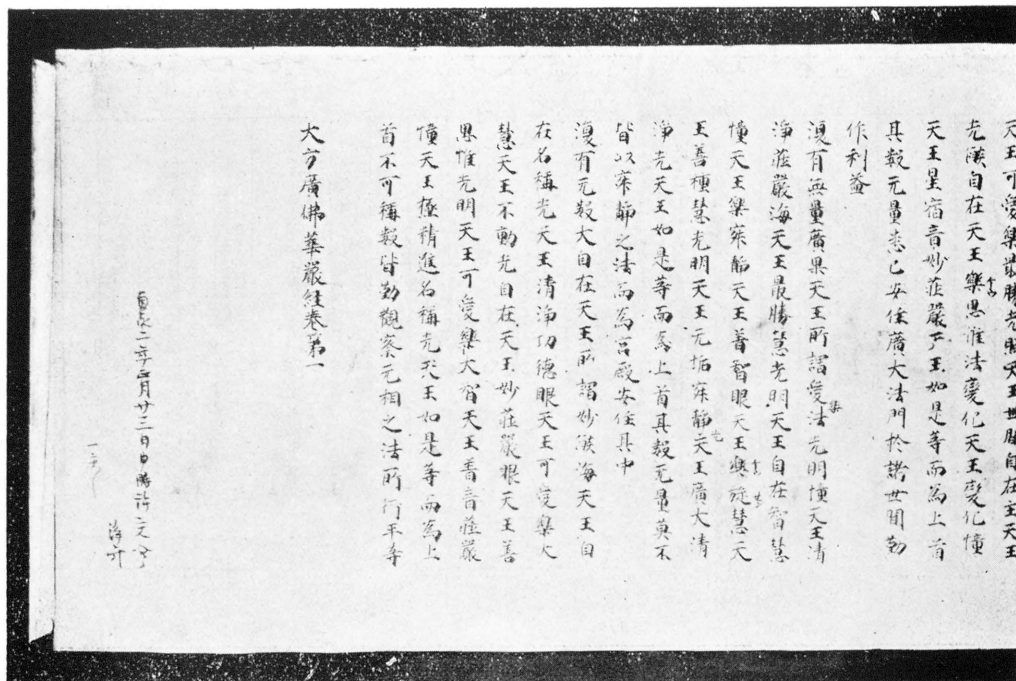 天王可愛樂最勝光明天王世間自在主天王
光陰自在天王樂思惟法變化天王變化幢
天王星宿音妙莊嚴天王如是等而為上首
其數无量悉已安住廣大法門於諸世間勤
作利益
復有無量廣果天王所謂愛法光明幢天王清
淨莊嚴海天王最勝慧光明天王自在智慧
幢天王樂寂靜天王普智眼天王樂旋慧天
王善種慧光明天王无垢寂靜光天王廣大清
淨光天王如是等而為上首其數无量莫不
皆以寂靜之法而為宮殿安住其中
復有无數大自在天王所謂妙㷔海天王自
在名稱光天王清淨功德眼天王可愛樂大
慧天王不動光自在天王妙莊嚴眼天王善
思惟光明天王可愛樂大智天王普音莊嚴
幢天王極精進名稱光天王如是等而為上
首不可稱數皆勤觀察无相之法所行平等
大方廣佛華嚴經卷第一
二年正月廿三日